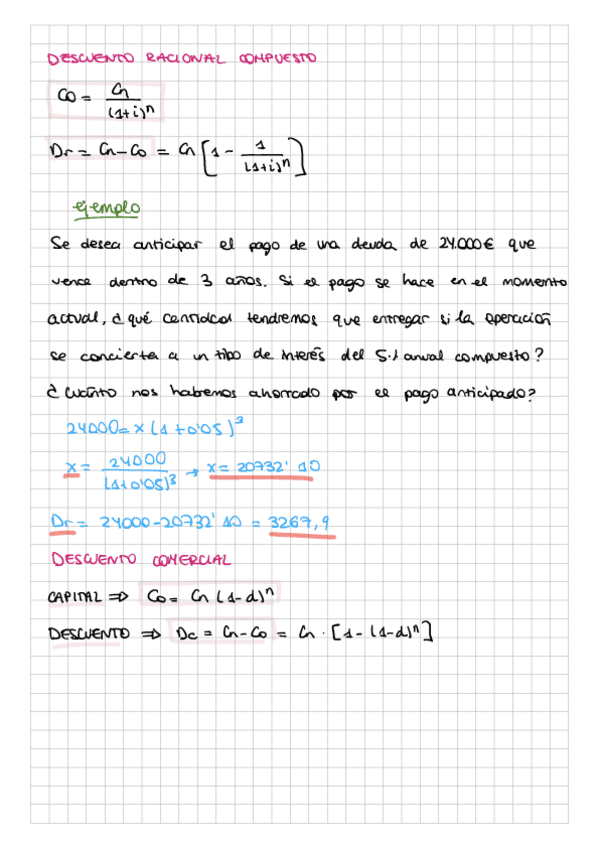 DESCUENTO RACIONAL COMPUESTO
Co = Cn / (1+i)^n
Dr = Cn - Co = Cn [1 - 1 / (1+i)^n]
ejemplo
Se desea anticipar el pago de una deuda de 24.000€ que
vence dentro de 3 años. Si el pago se hace en el momento
actual, ¿qué cantidad tendremos que entregar si la operación
se concierta a un tipo de interés del 5% anual compuesto?
¿Cuánto nos habremos ahorrado por el pago anticipado?
24000 = x (1 + 0'05)^3
x = 24000 / (1+0'05)^3 → x = 20732'10
Dr = 24000 - 20732'10 = 3267,9
DESCUENTO COMERCIAL
CAPITAL ⇒ Co = Cn (1-d)^n
DESCUENTO ⇒ Dc = Cn - Co = Cn · [1 - (1-d)^n]